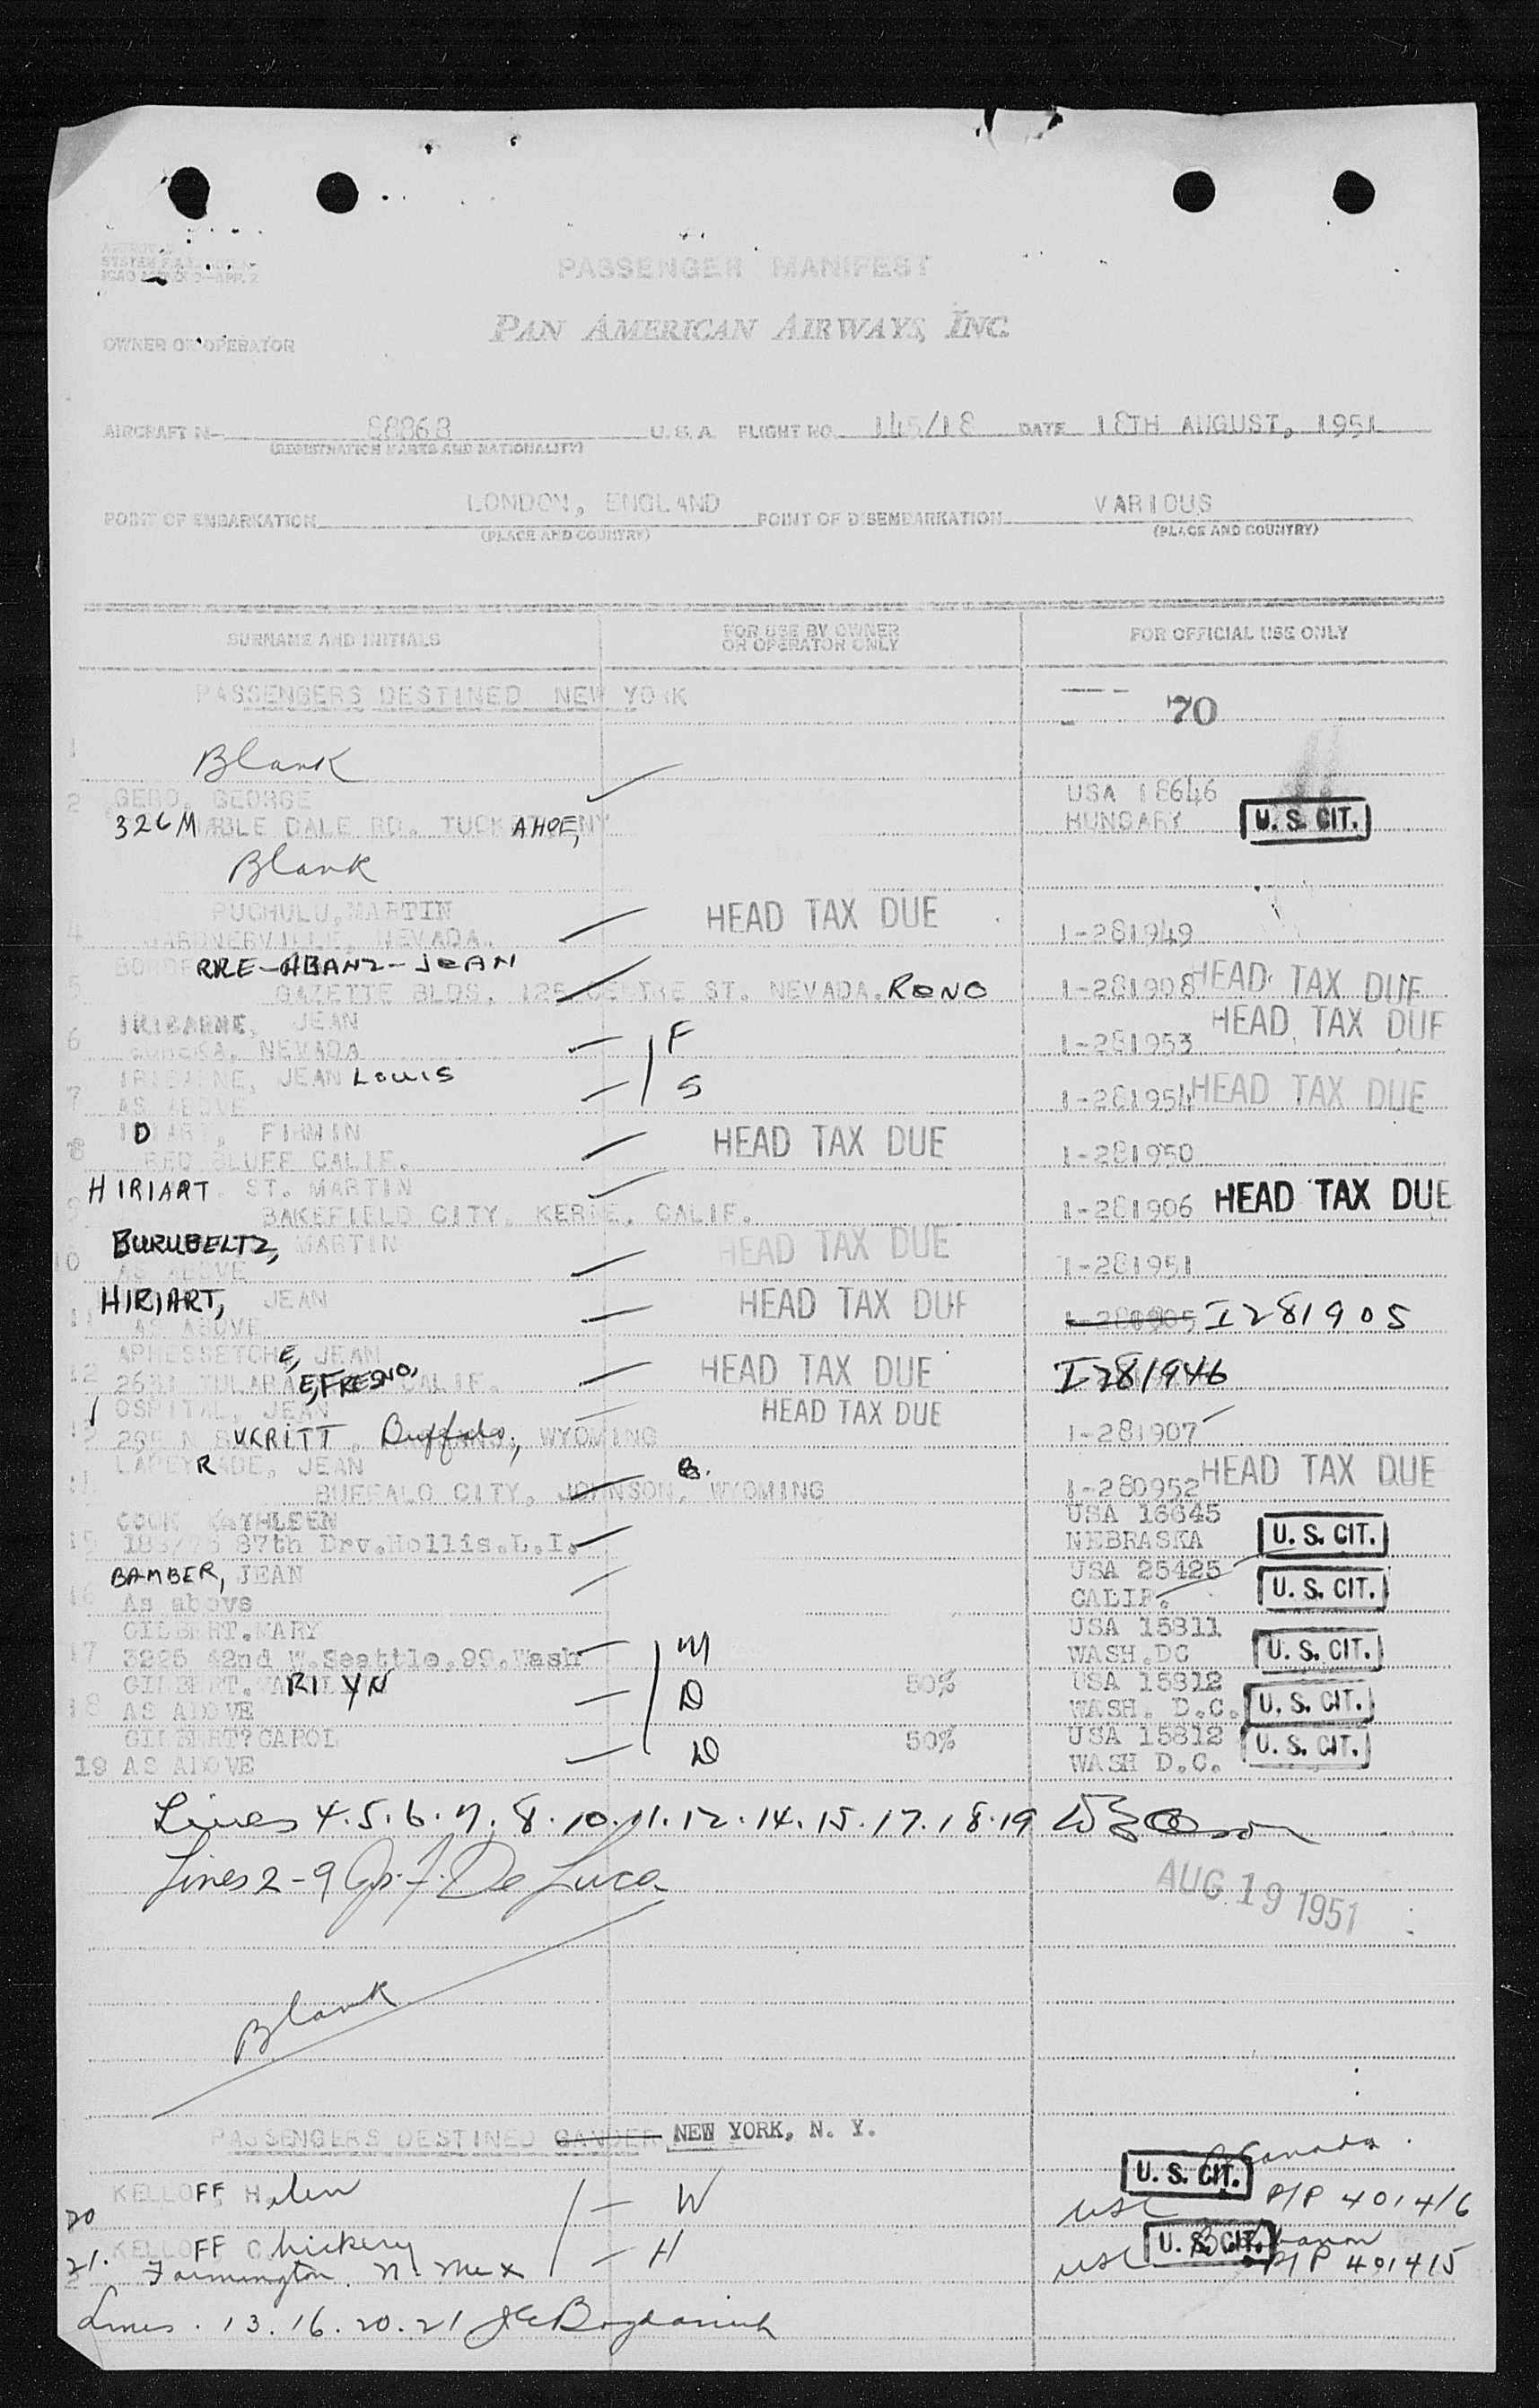 PASSENGER MANIFEST
PAN AMERICAN AIRWAYS, INC.
OWNER OR OPERATOR
AIRCRAFT N- 88868 U.S.A. FLIGHT NO. 145/18 DATE 18TH AUGUST, 1951
(REGISTRATION MARKS AND NATIONALITY)
LONDON, ENGLAND VARIOUS
POINT OF EMBARKATION POINT OF DISEMBARKATION
(PLACE AND COUNTRY) (PLACE AND COUNTRY)
SURNAME AND INITIALS FOR USE BY OWNER OR OPERATOR ONLY FOR OFFICIAL USE ONLY
PASSENGERS DESTINED NEW YORK 70
1 Blank
2 GERO, GEORGE USA 18646
326 MARBLE DALE RD. TUCKAHOE, NY HUNGARY U. S. CIT.
Blank
PUCHULU, MARTIN HEAD TAX DUE
4 GARDNERVILLE, NEVADA. 1-281949
RRE-ABANZ-JEAN
5 GAZETTE BLDS. 125 CENTRE ST. NEVADA. RENO 1-281908 HEAD TAX DUE
IRIBARNE, JEAN HEAD TAX DUE
6 EUREKA, NEVADA F 1-281953
IRIBARNE, JEAN LOUIS
7 AS ABOVE S 1-281954 HEAD TAX DUE
FIRMIN HEAD TAX DUE
8 RED BLUFF CALIF. 1-281950
HIRIART ST. MARTIN
9 BAKEFIELD CITY, KERNE, CALIF. 1-281906 HEAD TAX DUE
BURUBELTZ, MARTIN HEAD TAX DUE
10 AS ABOVE 1-281951
HIRIART, JEAN HEAD TAX DUE
11 AS ABOVE I 281905
APHESSETCHE, JEAN HEAD TAX DUE
12 2631 TULARE, FRESNO, CALIF. I281946
OSPITAL, JEAN HEAD TAX DUE
VERITT, Buffalo, WYOMING 1-281907
LAPEYRADE, JEAN B. HEAD TAX DUE
BUFFALO CITY, JOHNSON, WYOMING 1-280952
COOK KATHLEEN USA 16645
15 87th Drv. Hollis. L.I. NEBRASKA U. S. CIT.
BAMBER, JEAN USA 25425
16 As above CALIF. U. S. CIT.
GILBERT. MARY USA 15811
17 3225 42nd W. Seattle. 99. Wash M WASH. DC U. S. CIT.
GILBERT. MARILYN 50% USA 15812
18 AS ABOVE D WASH. D.C. U. S. CIT.
GILBERT? CAROL 50% USA 15812
19 AS ABOVE D WASH D.C. U. S. CIT.
Lines 4.5.6.7.8.10.11.12.14.15.17.18.19
Lines 2-9 De Luca
AUG 19 1951
Blank
PASSENGERS DESTINED GANDER NEW YORK, N. Y.
Canada
KELLOFF, Helen W U. S. CIT.
20 USC P/P 401416
KELLOFF Chickery H U. S. CIT.
21. Farmington N. Mex USC P/P 401415
Lines . 13.16.20.21